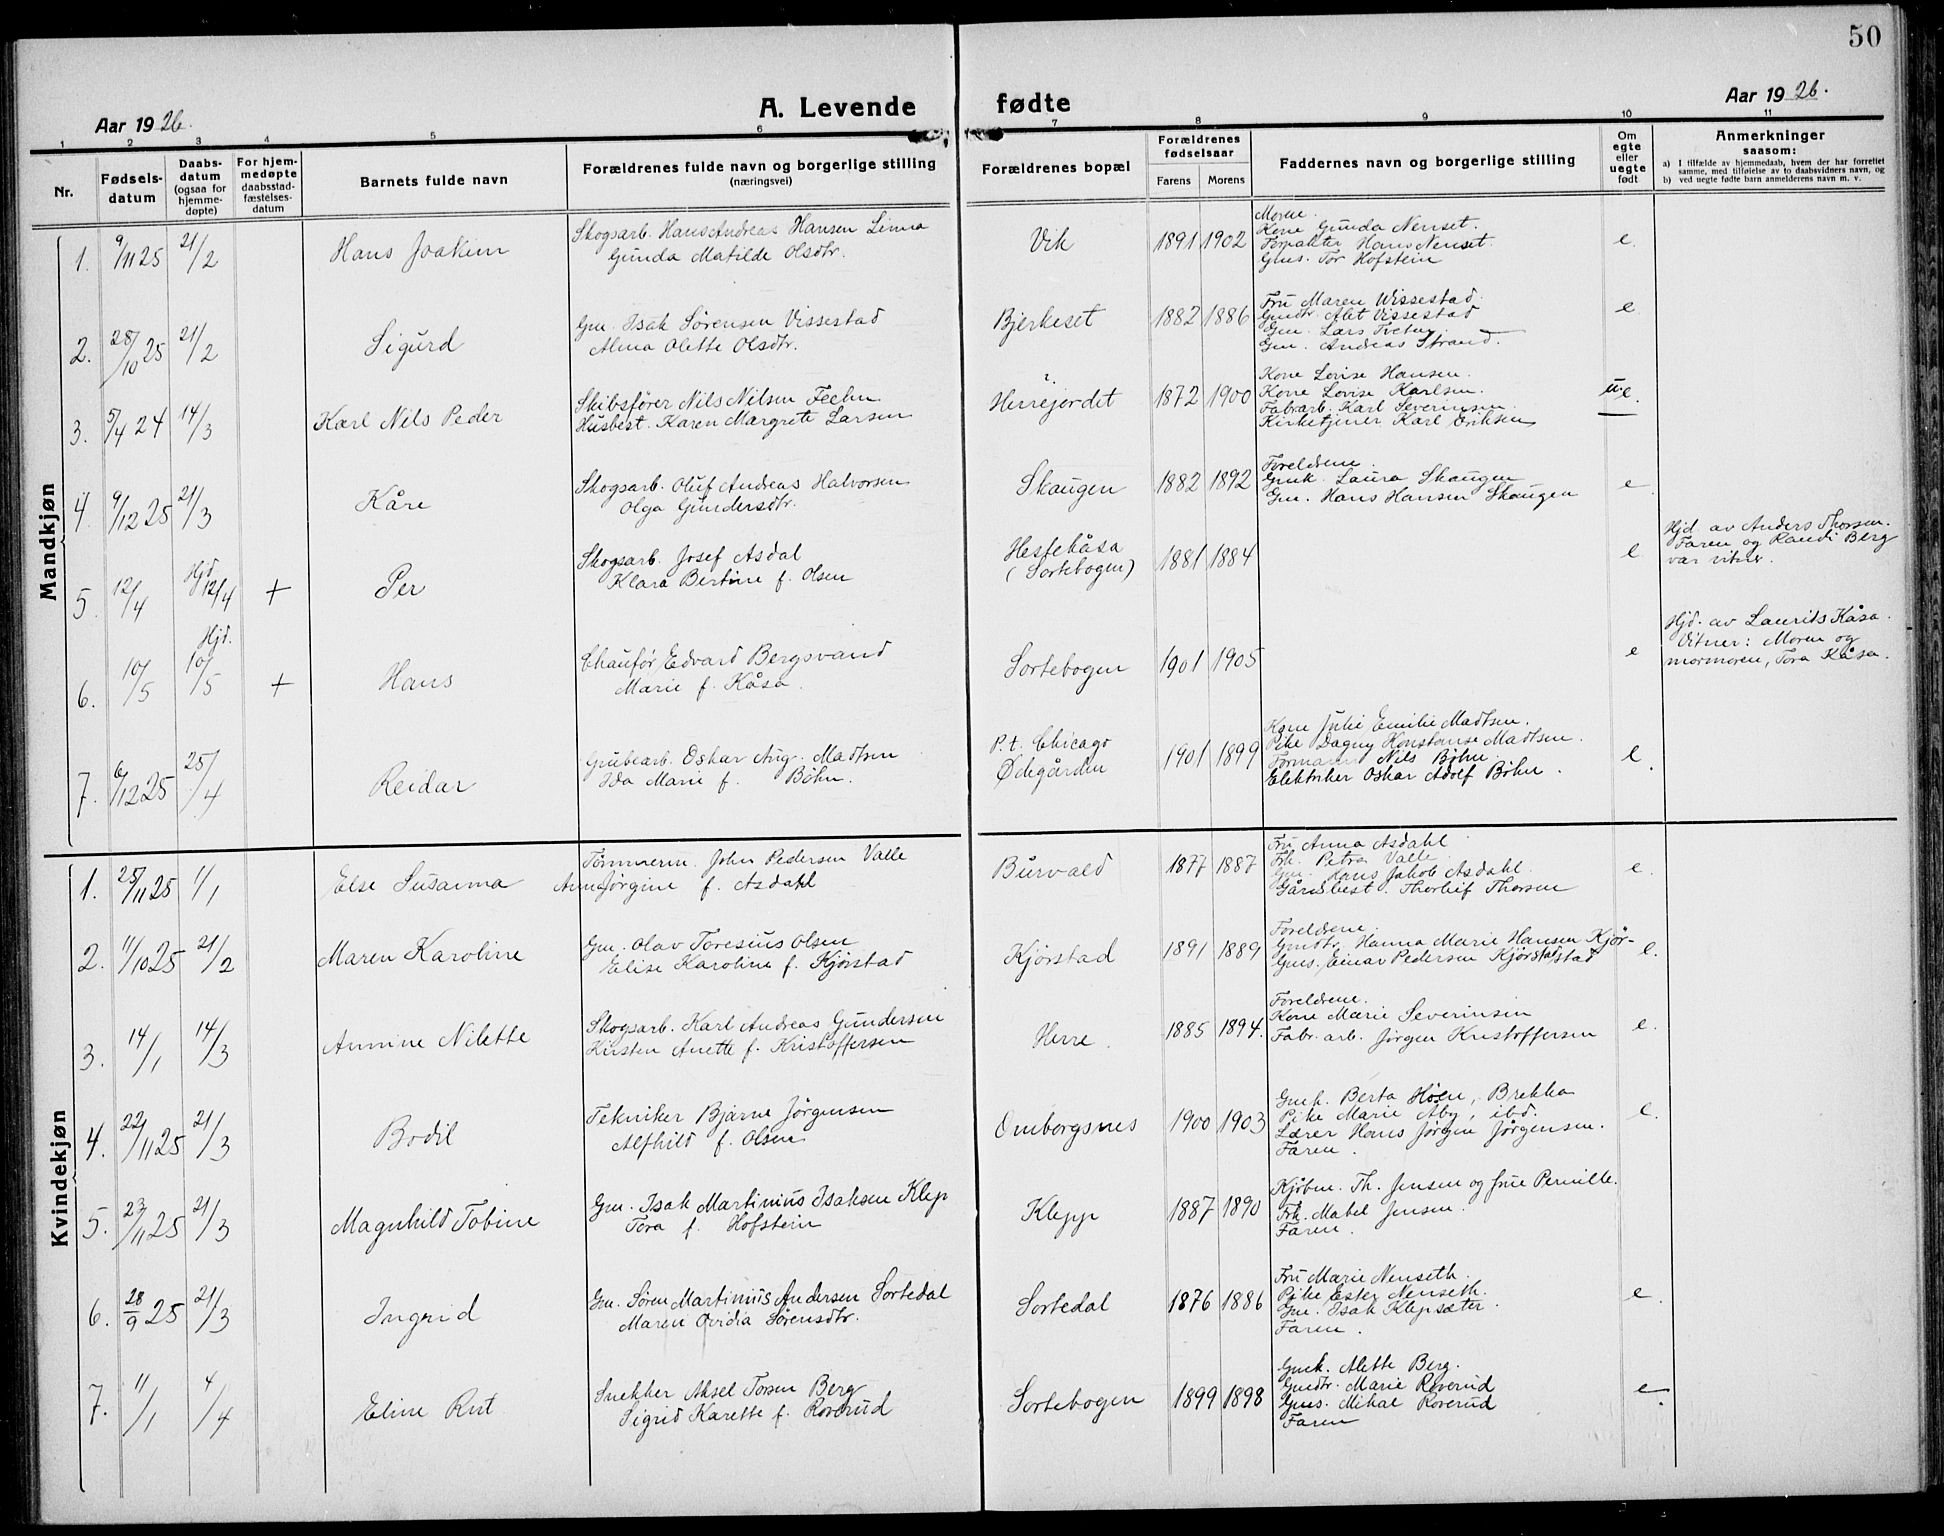 50
A. Levende fødte
Aar 1926.
Aar 1926.
1 2 3 4 5 6 7 8 9 10 11
Nr.
Fødsels-
datum
Daabs-
datum
(ogsaa for
hjemme-
døpte)
For hjem-
medøpte
daabsstad-
fæstelses-
datum
Barnets fulde navn
Forældrenes fulde navn og borgerlige stilling
(næringsvei)
Forældrenes bopæl
Forældrenes
fødselsaar
Farens Morens
Faddernes navn og borgerlige stilling
Om
egte
eller
uegte
født
Anmerkninger
saasom:
a) I tilfælde av hjemmedaab, hvem der har forrettet
samme, med tilføielse av to daabsvidners navn, og
b) ved uegte fødte barn anmelderens navn m. v.
Mandkjøn
1. 9/11 25 21/2 Hans Joakim
Skogsarb. Hans Andreas Hansen Linna
Gunda Matilde Olsdtr.
Vik 1891 1902
Moren.
Kone Gunda Nenset.
Forpakter Hans Nenset.
Gms. Tor Hofstein
e.
2. 28/10 25 21/2 Sigurd
Gm. Isak Sørensen Vissestad
Alma Olette Olsdtr.
Bjerkeset 1882 1886
Fru Maren Wissestad.
Gmdtr. Alet Vissestad
Gm. Lars Tveten.
Gm. Andreas Strand.
e.
3. 5/4 24 14/3 Karl Nils Peder
Skibsfører Nils Nilsen Feehn
Husbest. Karen Margrete Larsen
Herrejordet 1872 1900
Kone Lovise Hansen.
Kone Lovise Karlsen.
Fabrarb. Karl Severinsen.
Kirketjener Karl Eriksen
u.e.
4. 9/12 25 21/3 Kåre
Skogsarb. Oluf Andreas Halvorsen
Olga Gundersdtr.
Skaugen 1882 1892
Foreldrene.
Gmk. Laura Skaugen
Gm. Hans Hansen Skaugen
e.
5. 12/4 Hjd. 12/4 + Per
Skogsarb. Josef Asdal
Klara Bertine f. Olsen
Hestehåsa
(Sortebogen) 1881 1884
e
Hjd. av Anders Thorsen.
Faren og Randi Berg
var vitner.
6. 10/5 Hjd. 10/5 + Hans
Chaufør Edvard Bergsvand
Marie f. Kåsa.
Sortebogen 1901 1905
e
Hjd. av Laurits Kåsa.
Vitner: Moren og
mormoren, Tora Kåsa.
7. 6/12 25 25/4 Reidar
Grubearb. Oskar Aug. Madtsen
Ida Marie f. Böhn.
P. t. Chicago
Ødegården 1901 1899
Kone Julie Emilie Madtsen.
Pike Dagny Konstanse Madtsen.
Formann Nils Böhn.
Elektriker Oskar Adolf Böhn.
e.
Kvindekjøn
1. 25/11 25 1/1 Else Susanna
Tømmerm. John Pedersen Valle
Anna Jørgine f. Asdahl
Burvald 1877 1887
Fru Anna Asdahl
Frk. Petra Valle
Gm. Hans Jakob Asdahl.
Gårdsbest. Thorleif Thorsen
e.
2. 11/10 25 21/2 Maren Karoline
Gm. Olav Toresius Olsen
Elise Karoline f. Kjørstad
Kjørstad 1891 1889
Foreldrene.
Gmdtr. Hanna Marie Hansen Kjør-
stad
Gms. Einar Pedersen Kjørstad
e.
3. 14/1 14/3 Annine Nilette
Skogsarb. Karl Andreas Gundersen
Kirsten Anette f. Kristoffersen
Herre. 1885 1894.
Foreldrene.
Kone Marie Severinsen
Fabr. arb. Jørgen Kristoffersen
e.
4. 22/11 25 21/3 Bodil
Tekniker Bjarne Jørgensen
Alfhild f. Olsen
Omborgsnes 1900 1903
Gmk. Berta Høen, Brekka
Pike Marie Aby, ibd.
Lærer Hans Jørgen Jørgensen.
Faren.
e.
5. 23/11 25 21/3 Magnhild Tobine
Gm. Isak Martinius Isaksen Klep
Tora f. Hofstein
Klepp 1887 1890
Kjøbm. Th. Jensen og frue Pernille.
Frk. Mabel Jensen.
Faren.
6. 28/9 25 21/3 Ingrid
Gm. Søren Martinius Andersen Sortedal
Maren Ovidia Sørensdtr.
Sortedal 1876 1886
Fru Marie Nenseth.
Pike Ester Nenseth.
Gm. Isak Klepsæter.
Faren.
e.
7. 11/1 4/4 Eline Rut
Snekker Aksel Torsen Berg
Sigrid Karette f. Roverud
Sortebogen 1899 1898
Gmk. Alette Berg.
Gmdtr. Marie Roverud
Gms. Mikal Roverud
Faren
e.